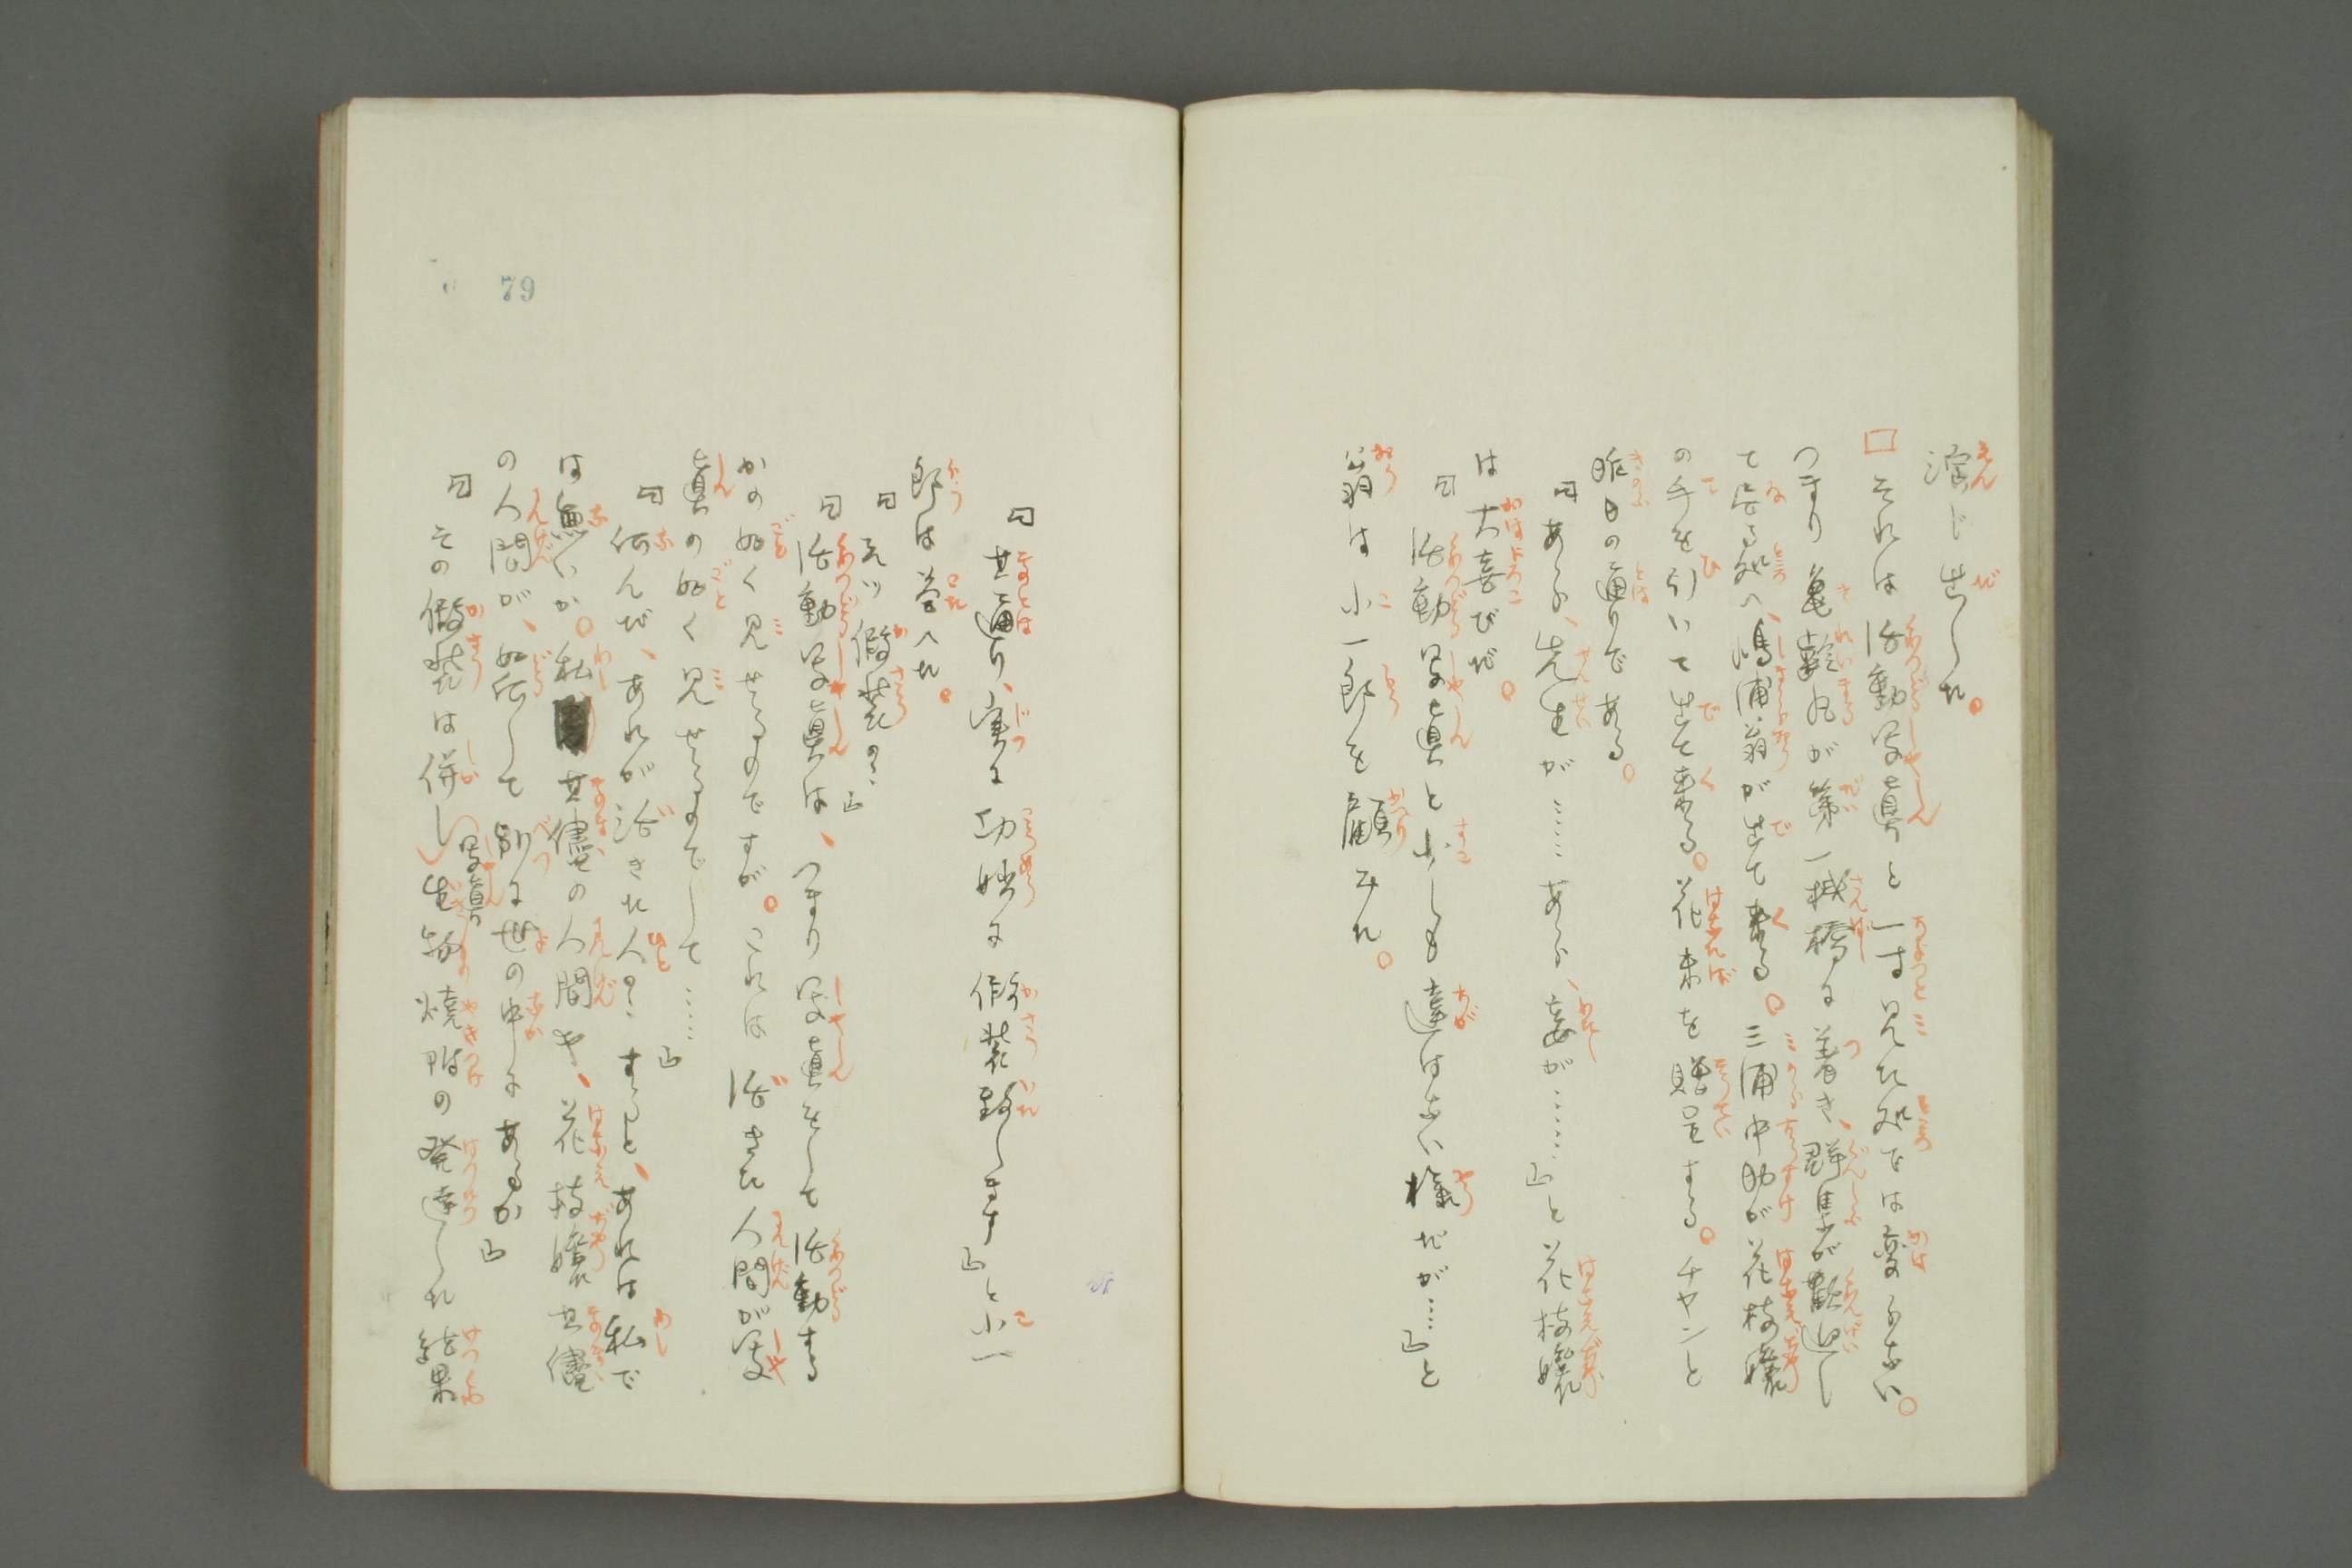 演じ出した。
□それは活動写真と一寸見た処では変らない。
つまり亀齢丸が第一桟橋に着き、群集が歓迎し
て居る処へ、嶋浦翁が出て来る。三浦中助が花枝嬢
の手を引いて出て来る。花束を贈呈する。チヤンと
昨日の通りである。
「あら、先生が……あら、妾が……」と花枝嬢
は大喜びだ。
「活動写真と少しも違はない様だが…」と
翁は小一郎を顧みた。
「其通り、実に功妙に假装致します」と小一
郎は答へた。
「えツ假装の？」
「活動写真は、つまり写真をして活動する
かの如く見せるのですが。これは活きた人間が写
真の如く見せるのでして……」
「何んだ、あれが活きた人？すると、あれは私で
は無いか。私其儘の人間や、花枝嬢其儘
の人間が、如何して別に世の中にあるか」
「その假装は併し写真生物焼附の発達した結果
79